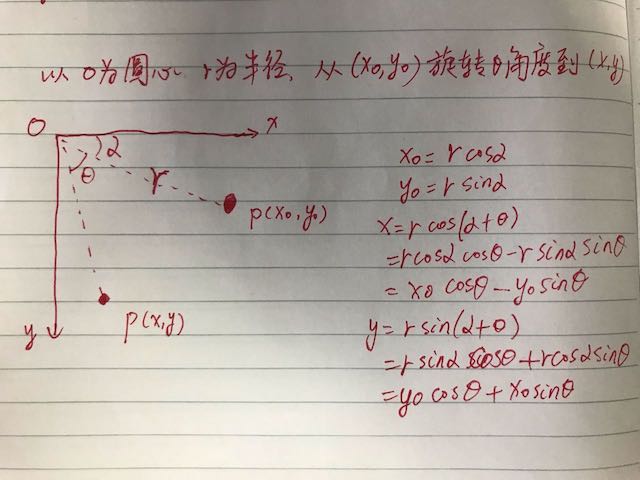 以O为圆心, r为半径, 从(x0,y0)旋转θ角度到(x,y)
O
x
α
θ
r
p(x0,y0)
p(x,y)
y
x0=rcosα
y0=rsinα
x=rcos(α+θ)
=rcosαcosθ-rsinαsinθ
=x0cosθ-y0sinθ
y=rsin(α+θ)
=rsinαcosθ+rcosαsinθ
=y0cosθ+x0sinθ